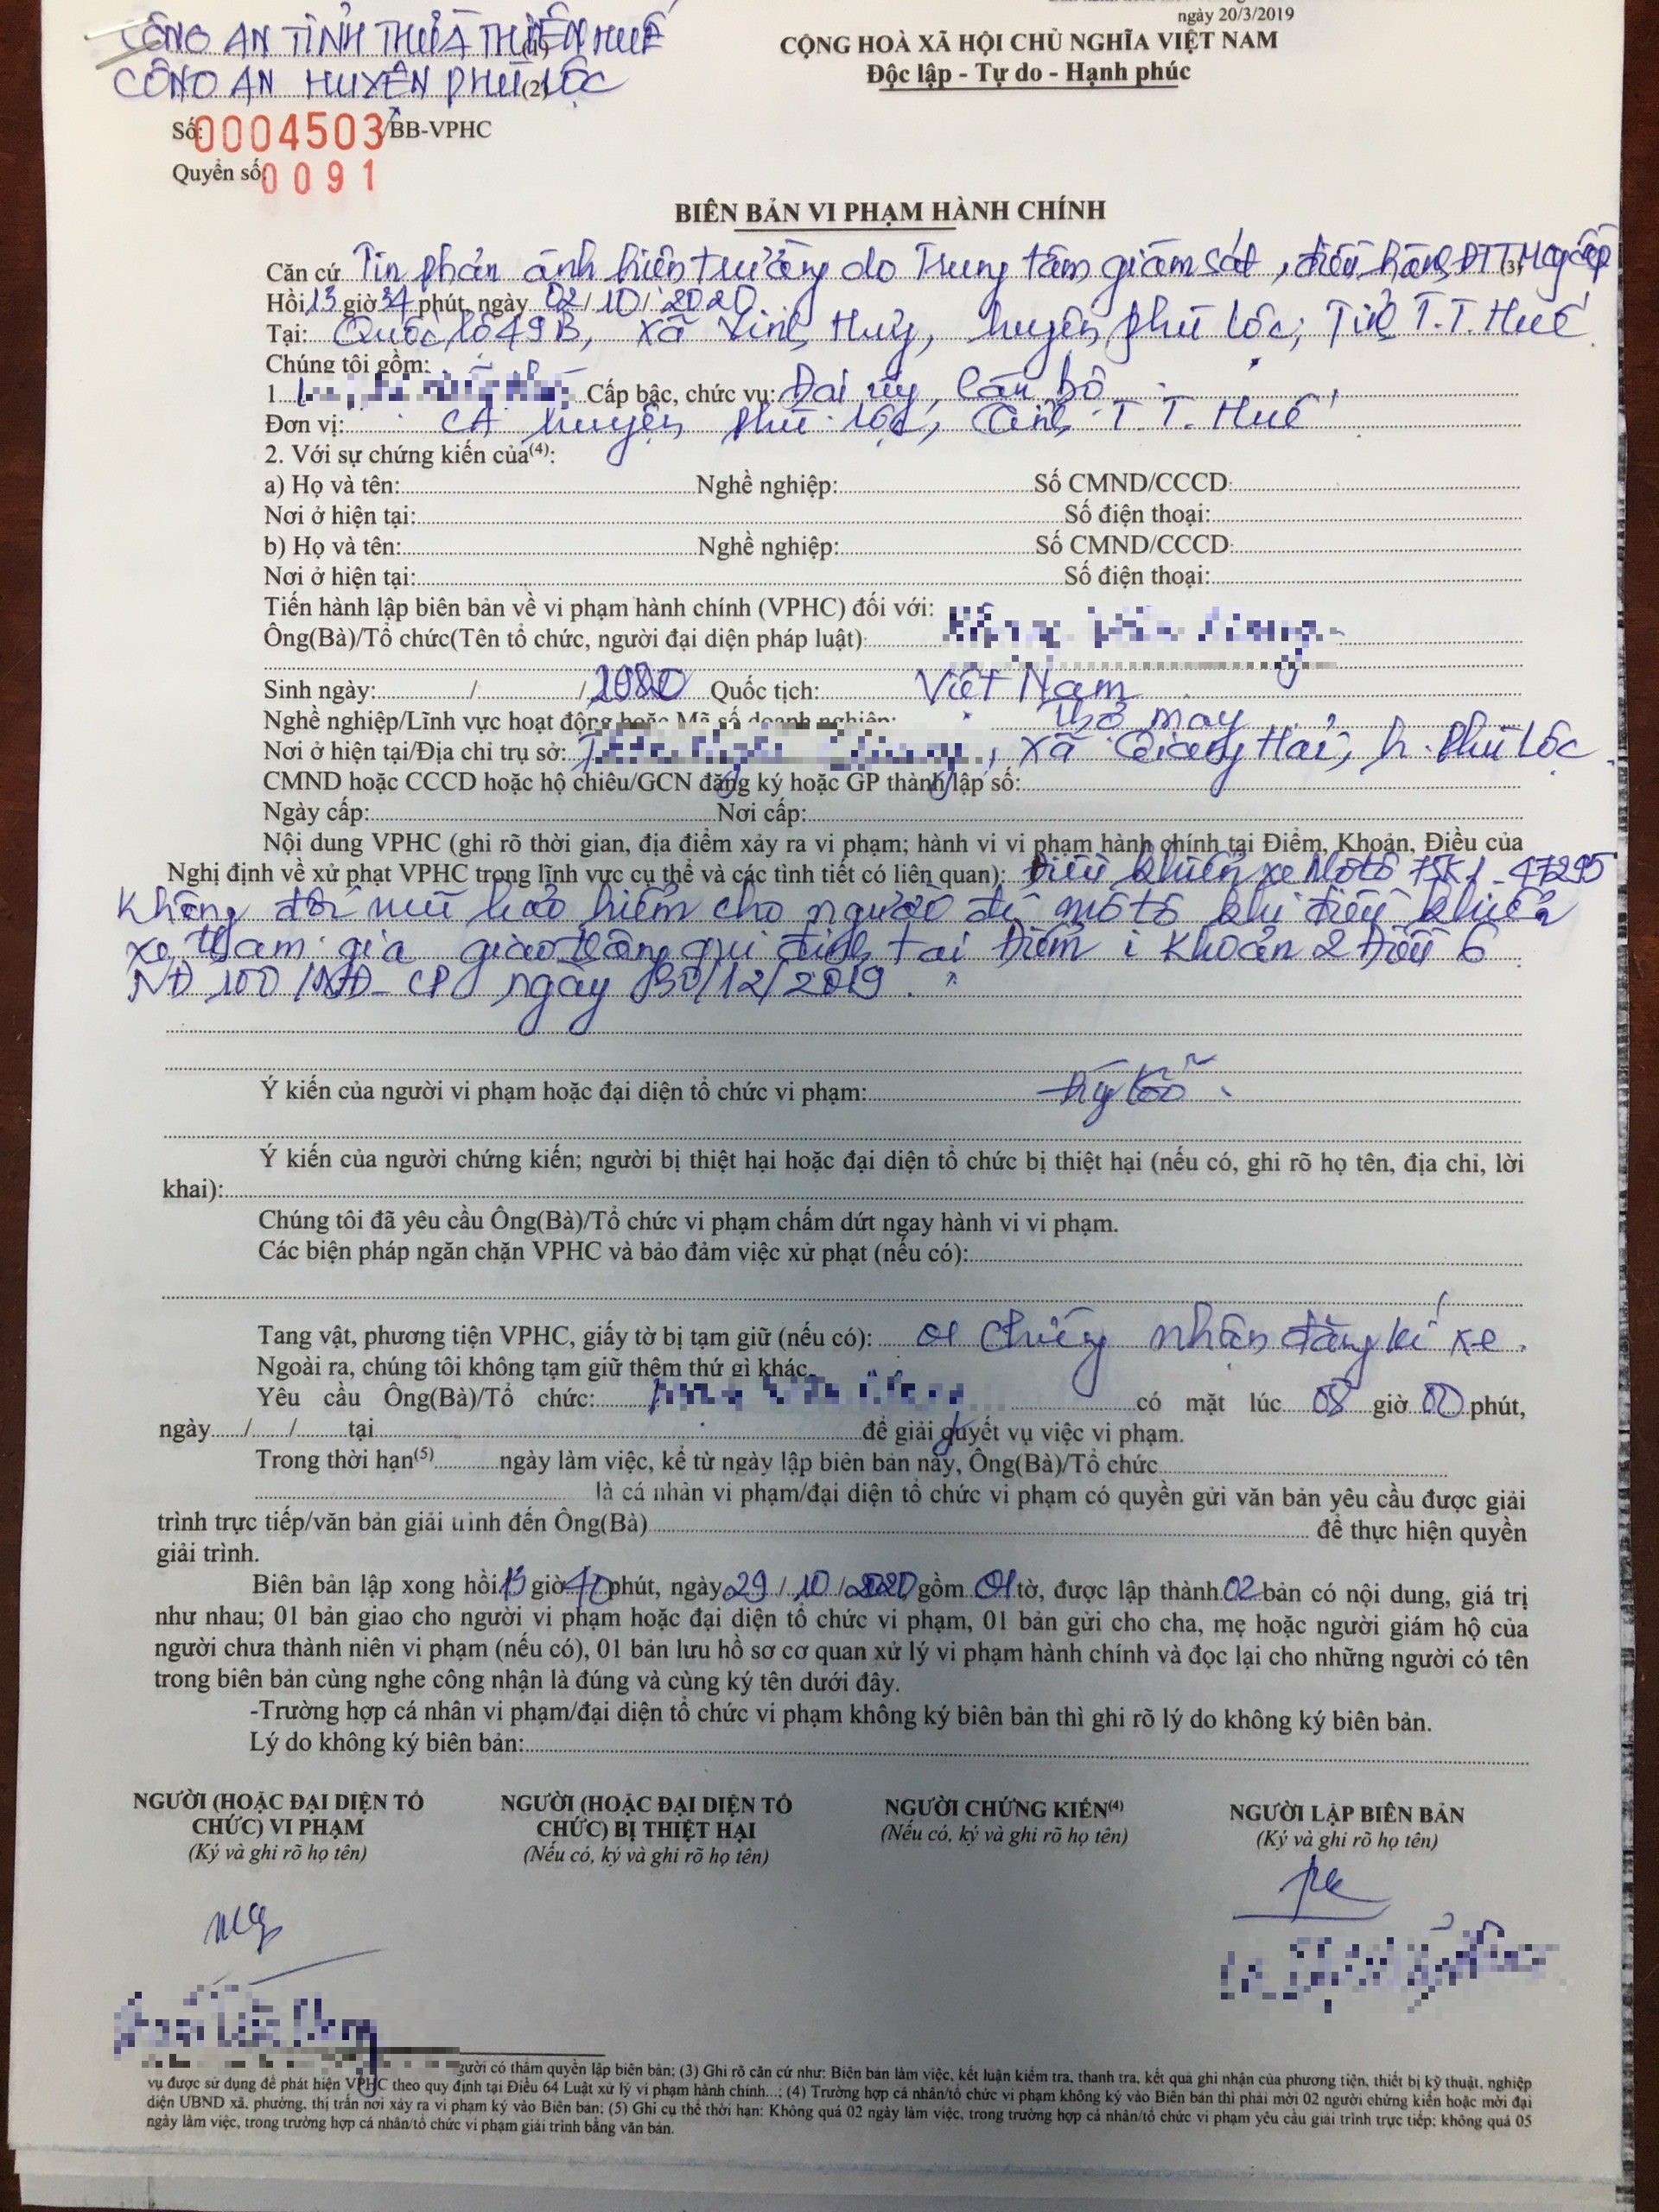 ngày 20/3/2019
CÔNG AN TỈNH THỪA THIÊN HUẾ (1)
CỘNG HOÀ XÃ HỘI CHỦ NGHĨA VIỆT NAM
CÔNG AN HUYỆN PHÚ LỘC (2)
Độc lập - Tự do - Hạnh phúc
Số: 0004503/BB-VPHC
Quyển số: 0091
BIÊN BẢN VI PHẠM HÀNH CHÍNH
Căn cứ Tin phản ánh hiện trường do Trung tâm giám sát, điều hành ĐTTM (3) cung cấp
Hồi 13 giờ 34 phút, ngày 02/10/2020
Tại: Quốc lộ 49B, xã Vinh Hưng, huyện Phú Lộc, Tỉnh T.T.Huế
Chúng tôi gồm:
1. Cấp bậc, chức vụ: Đại úy, Cán bộ
Đơn vị: CA huyện Phú Lộc, tỉnh T.T.Huế
2. Với sự chứng kiến của(4):
a) Họ và tên: Nghề nghiệp: Số CMND/CCCD:
Nơi ở hiện tại: Số điện thoại:
b) Họ và tên: Nghề nghiệp: Số CMND/CCCD:
Nơi ở hiện tại: Số điện thoại:
Tiến hành lập biên bản về vi phạm hành chính (VPHC) đối với:
Ông(Bà)/Tổ chức(Tên tổ chức, người đại diện pháp luật):
Sinh ngày: / /1980 Quốc tịch: Việt Nam
Nghề nghiệp/Lĩnh vực hoạt động hoặc Mã số doanh nghiệp: Thợ may
Nơi ở hiện tại/Địa chỉ trụ sở: , xã Giang Hải, h. Phú Lộc
CMND hoặc CCCD hoặc hộ chiếu/GCN đăng ký hoặc GP thành lập số:
Ngày cấp: Nơi cấp:
Nội dung VPHC (ghi rõ thời gian, địa điểm xảy ra vi phạm; hành vi vi phạm hành chính tại Điểm, Khoản, Điều của
Nghị định về xử phạt VPHC trong lĩnh vực cụ thể và các tình tiết có liên quan): Điều khiển xe Môtô 75K1-47295
Không đội mũ bảo hiểm cho người đi môtô khi điều khiển
xe tham gia giao thông qui định tại Điểm i Khoản 2 Điều 6
NĐ 100/NĐ-CP ngày 30/12/2019.
Ý kiến của người vi phạm hoặc đại diện tổ chức vi phạm:
Ý kiến của người chứng kiến; người bị thiệt hại hoặc đại diện tổ chức bị thiệt hại (nếu có, ghi rõ họ tên, địa chỉ, lời
khai):
Chúng tôi đã yêu cầu Ông(Bà)/Tổ chức vi phạm chấm dứt ngay hành vi vi phạm.
Các biện pháp ngăn chặn VPHC và bảo đảm việc xử phạt (nếu có):
Tang vật, phương tiện VPHC, giấy tờ bị tạm giữ (nếu có): 01 chứng nhận đăng kí xe.
Ngoài ra, chúng tôi không tạm giữ thêm thứ gì khác.
Yêu cầu Ông(Bà)/Tổ chức: có mặt lúc 08 giờ 00 phút,
ngày / / tại để giải quyết vụ việc vi phạm.
Trong thời hạn(5) ngày làm việc, kể từ ngày lập biên bản này, Ông(Bà)/Tổ chức
là cá nhân vi phạm/đại diện tổ chức vi phạm có quyền gửi văn bản yêu cầu được giải
trình trực tiếp/văn bản giải trình đến Ông(Bà) để thực hiện quyền
giải trình.
Biên bản lập xong hồi 13 giờ 40 phút, ngày 29/10/2020 gồm 01 tờ, được lập thành 02 bản có nội dung, giá trị
như nhau; 01 bản giao cho người vi phạm hoặc đại diện tổ chức vi phạm, 01 bản gửi cho cha, mẹ hoặc người giám hộ của
người chưa thành niên vi phạm (nếu có), 01 bản lưu hồ sơ cơ quan xử lý vi phạm hành chính và đọc lại cho những người có tên
trong biên bản cùng nghe công nhận là đúng và cùng ký tên dưới đây.
-Trường hợp cá nhân vi phạm/đại diện tổ chức vi phạm không ký biên bản thì ghi rõ lý do không ký biên bản.
Lý do không ký biên bản:
NGƯỜI (HOẶC ĐẠI DIỆN TỔ CHỨC) VI PHẠM
(Ký và ghi rõ họ tên)
NGƯỜI (HOẶC ĐẠI DIỆN TỔ CHỨC) BỊ THIỆT HẠI
(Nếu có, ký và ghi rõ họ tên)
NGƯỜI CHỨNG KIẾN(4)
(Nếu có, ký và ghi rõ họ tên)
NGƯỜI LẬP BIÊN BẢN
(Ký và ghi rõ họ tên)
người có thẩm quyền lập biên bản; (3) Ghi rõ căn cứ như: Biên bản làm việc, kết luận kiểm tra, thanh tra, kết quả ghi nhận của phương tiện, thiết bị kỹ thuật, nghiệp
vụ được sử dụng để phát hiện VPHC theo quy định tại Điều 64 Luật xử lý vi phạm hành chính...; (4) Trường hợp cá nhân/tổ chức vi phạm không ký vào Biên bản thì phải mời 02 người chứng kiến hoặc mời đại
diện UBND xã, phường, thị trấn nơi xảy ra vi phạm ký vào Biên bản; (5) Ghi cụ thể thời hạn: Không quá 02 ngày làm việc, trong trường hợp cá nhân/tổ chức vi phạm yêu cầu giải trình trực tiếp; không quá 05
ngày làm việc, trong trường hợp cá nhân/tổ chức vi phạm giải trình bằng văn bản.